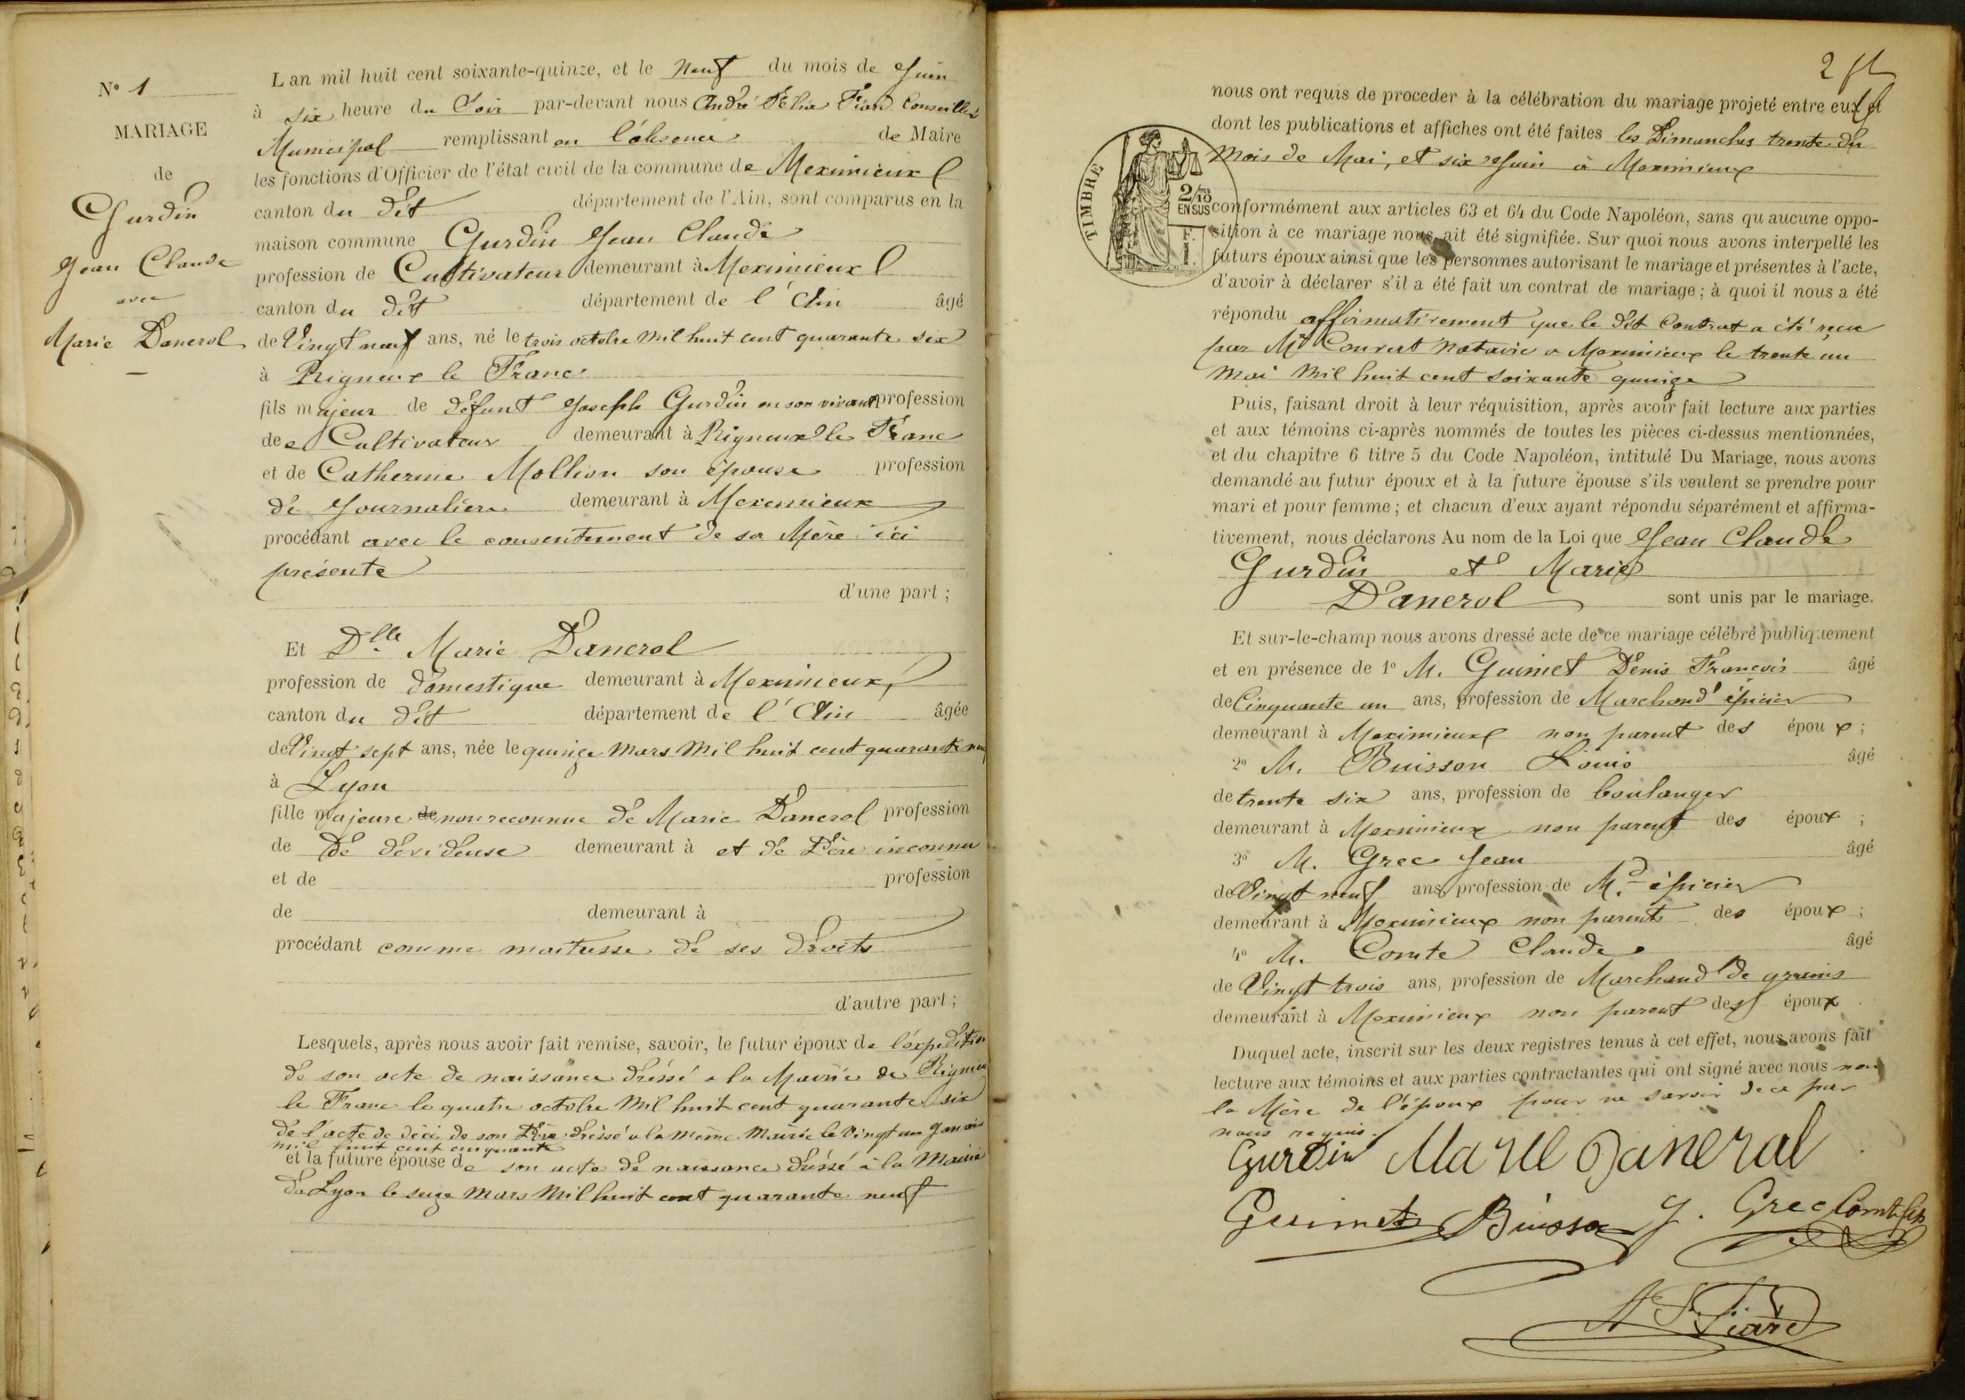 N° 1
MARIAGE
de
Gurdin
Jean Claude
avec
Marie Danerol
L'an mil huit cent soixante-quinze, et le neuf du mois de Juin
à six heure du Soir par-devant nous André Félix Fiard Conseiller
Municipal remplissant en l'absence de Maire
les fonctions d'Officier de l'état civil de la commune de Meximieux
canton du dit département de l'Ain, sont comparus en la
maison commune Gurdin Jean Claude
profession de Cultivateur demeurant à Meximieux
canton du dit département de l'Ain âgé
de Vingt neuf ans, né le trois octobre mil huit cent quarante six
à Rigneux le Franc
fils majeur de défunt Joseph Gurdin en son vivant profession
de Cultivateur demeurant à Rigneux le Franc
et de Catherine Mollion son épouse profession
de Journalière demeurant à Meximieux
procédant avec le consentement de sa Mère ici
présente
d'une part ;
Et Dlle Marie Danerol
profession de domestique demeurant à Meximieux
canton du dit département de l'Ain âgée
de Vingt sept ans, née le quinze Mars Mil huit cent quarante neuf
à Lyon
fille majeure de non reconnue de Marie Danerol profession
de De dévideuse demeurant à et de Père inconnu
et de profession
de demeurant à
procédant comme maitresse de ses droits
d'autre part ;
Lesquels, après nous avoir fait remise, savoir, le futur époux de l'expédition
de son acte de naissance dréssé a la Mairie de Rigneux
le Franc le quatre octobre Mil huit cent quarante six
de l'acte de décé de son Père dréssé a la même Mairie le Vingt un Janvier
mil huit cent cinquante
et la future épouse de son acte de naissance dréssé à la Mairie
de Lyon le seize Mars Mil huit cent quarante neuf
2
nous ont requis de proceder à la célébration du mariage projeté entre eux et
dont les publications et affiches ont été faites les Dimanches trente du
Mois de Mai, et six Juin à Meximieux
TIMBRE
2/10
EN SUS
F.
1.
conformément aux articles 63 et 64 du Code Napoléon, sans qu'aucune oppo-
sition à ce mariage nous ait été signifiée. Sur quoi nous avons interpellé les
futurs époux ainsi que les personnes autorisant le mariage et présentes à l'acte,
d'avoir à déclarer s'il a été fait un contrat de mariage ; à quoi il nous a été
répondu affirmativement que le dit Contrat a été reçu
par Me Convert Notaire a Meximieux le trente un
Mai Mil huit cent soixante quinze
Puis, faisant droit à leur réquisition, après avoir fait lecture aux parties
et aux témoins ci-après nommés de toutes les pièces ci-dessus mentionnées,
et du chapitre 6 titre 5 du Code Napoléon, intitulé Du Mariage, nous avons
demandé au futur époux et à la future épouse s'ils veulent se prendre pour
mari et pour femme ; et chacun d'eux ayant répondu séparément et affirma-
tivement, nous déclarons Au nom de la Loi que Jean Claude
Gurdin et Marie
Danerol sont unis par le mariage.
Et sur-le-champ nous avons dressé acte de ce mariage célébré publiquement
et en présence de 1° M. Guimet Denis François âgé
de Cinquante un ans, profession de Marchand épicier
demeurant à Meximieux non parent des époux ;
2° M. Buisson Louis âgé
de trente six ans, profession de boulanger
demeurant à Meximieux non parent des époux ;
3° M. Grec Jean âgé
de Vingt neuf ans, profession de Md épicier
demeurant à Meximieux non parent des époux ;
4° M. Comte Claude âgé
de Vingt trois ans, profession de Marchand de grains
demeurant à Meximieux non parent des époux
Duquel acte, inscrit sur les deux registres tenus à cet effet, nous avons fait
lecture aux témoins et aux parties contractantes qui ont signé avec nous non
la Mère de l'époux pour ne savoir de ce par
nous requis.
Gurdin Marie Daneral
Guimet Buisson J. Grec Comte
A F Fiard